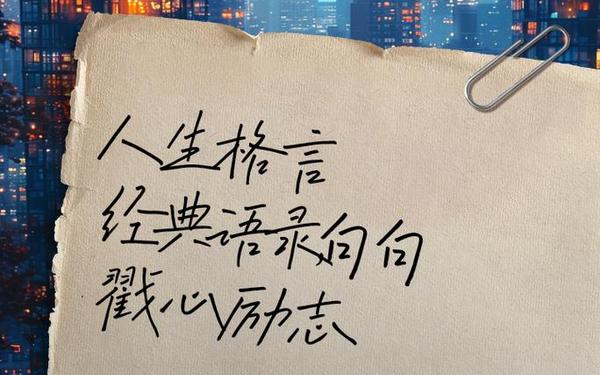 人生格言
经典语录,句句
戳心励志